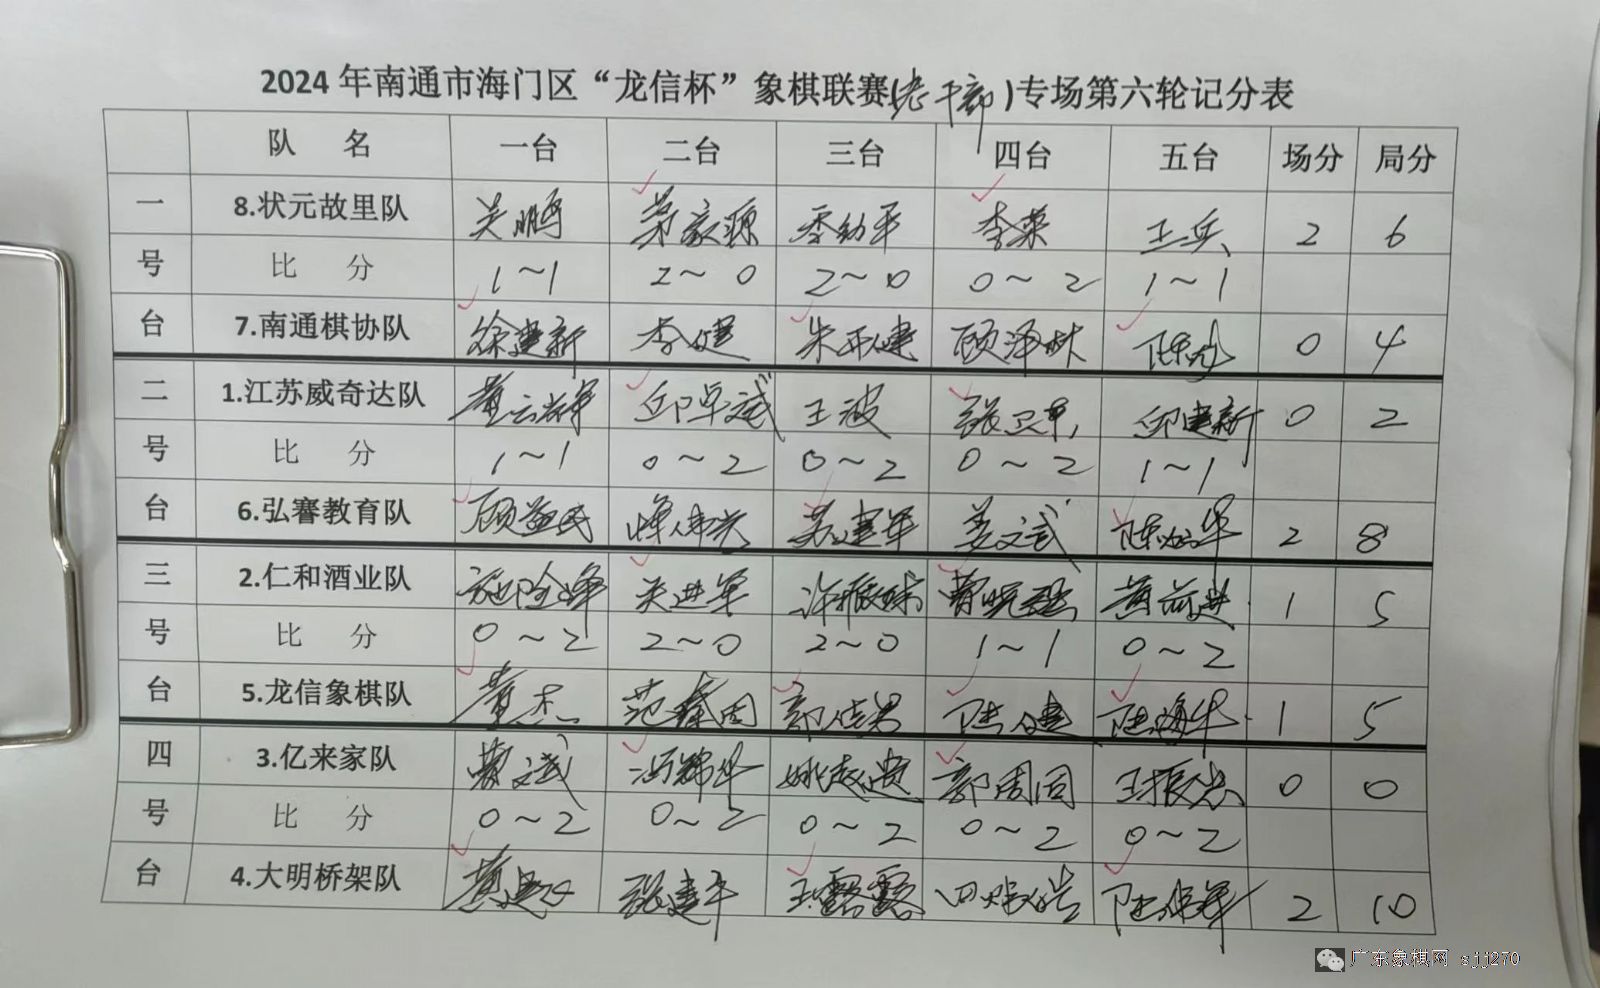 2024年南通市海门区“龙信杯”象棋联赛(老干部)专场第六轮记分表
队 名 一台 二台 三台 四台 五台 场分 局分
一 8.状元故里队 吴鹏 季幼平 李荣 王兵 2 6
号 比 分 1~1 2~0 2~0 0~2 1~1
台 7.南通棋协队 徐建新 李健 顾泽林 0 4
二 1.江苏威奇达队 董云祥 邱卓斌 王波 张卫东 邱建新 0 2
号 比 分 1~1 0~2 0~2 0~2 1~1
台 6.弘謇教育队 顾益民 苏建军 姜文斌 2 8
三 2.仁和酒业队 吴进军 许振球 黄前进 1 5
号 比 分 0~2 2~0 2~0 1~1 0~2
台 5.龙信象棋队 董杰 陆健 陆海华 1 5
四 3.亿来家队 黄文斌 冯锦华 郭周同 王振忠 0 0
号 比 分 0~2 0~2 0~2 0~2 0~2
台 4.大明桥架队 张建平 王露露 2 10
广东象棋网 sjj270